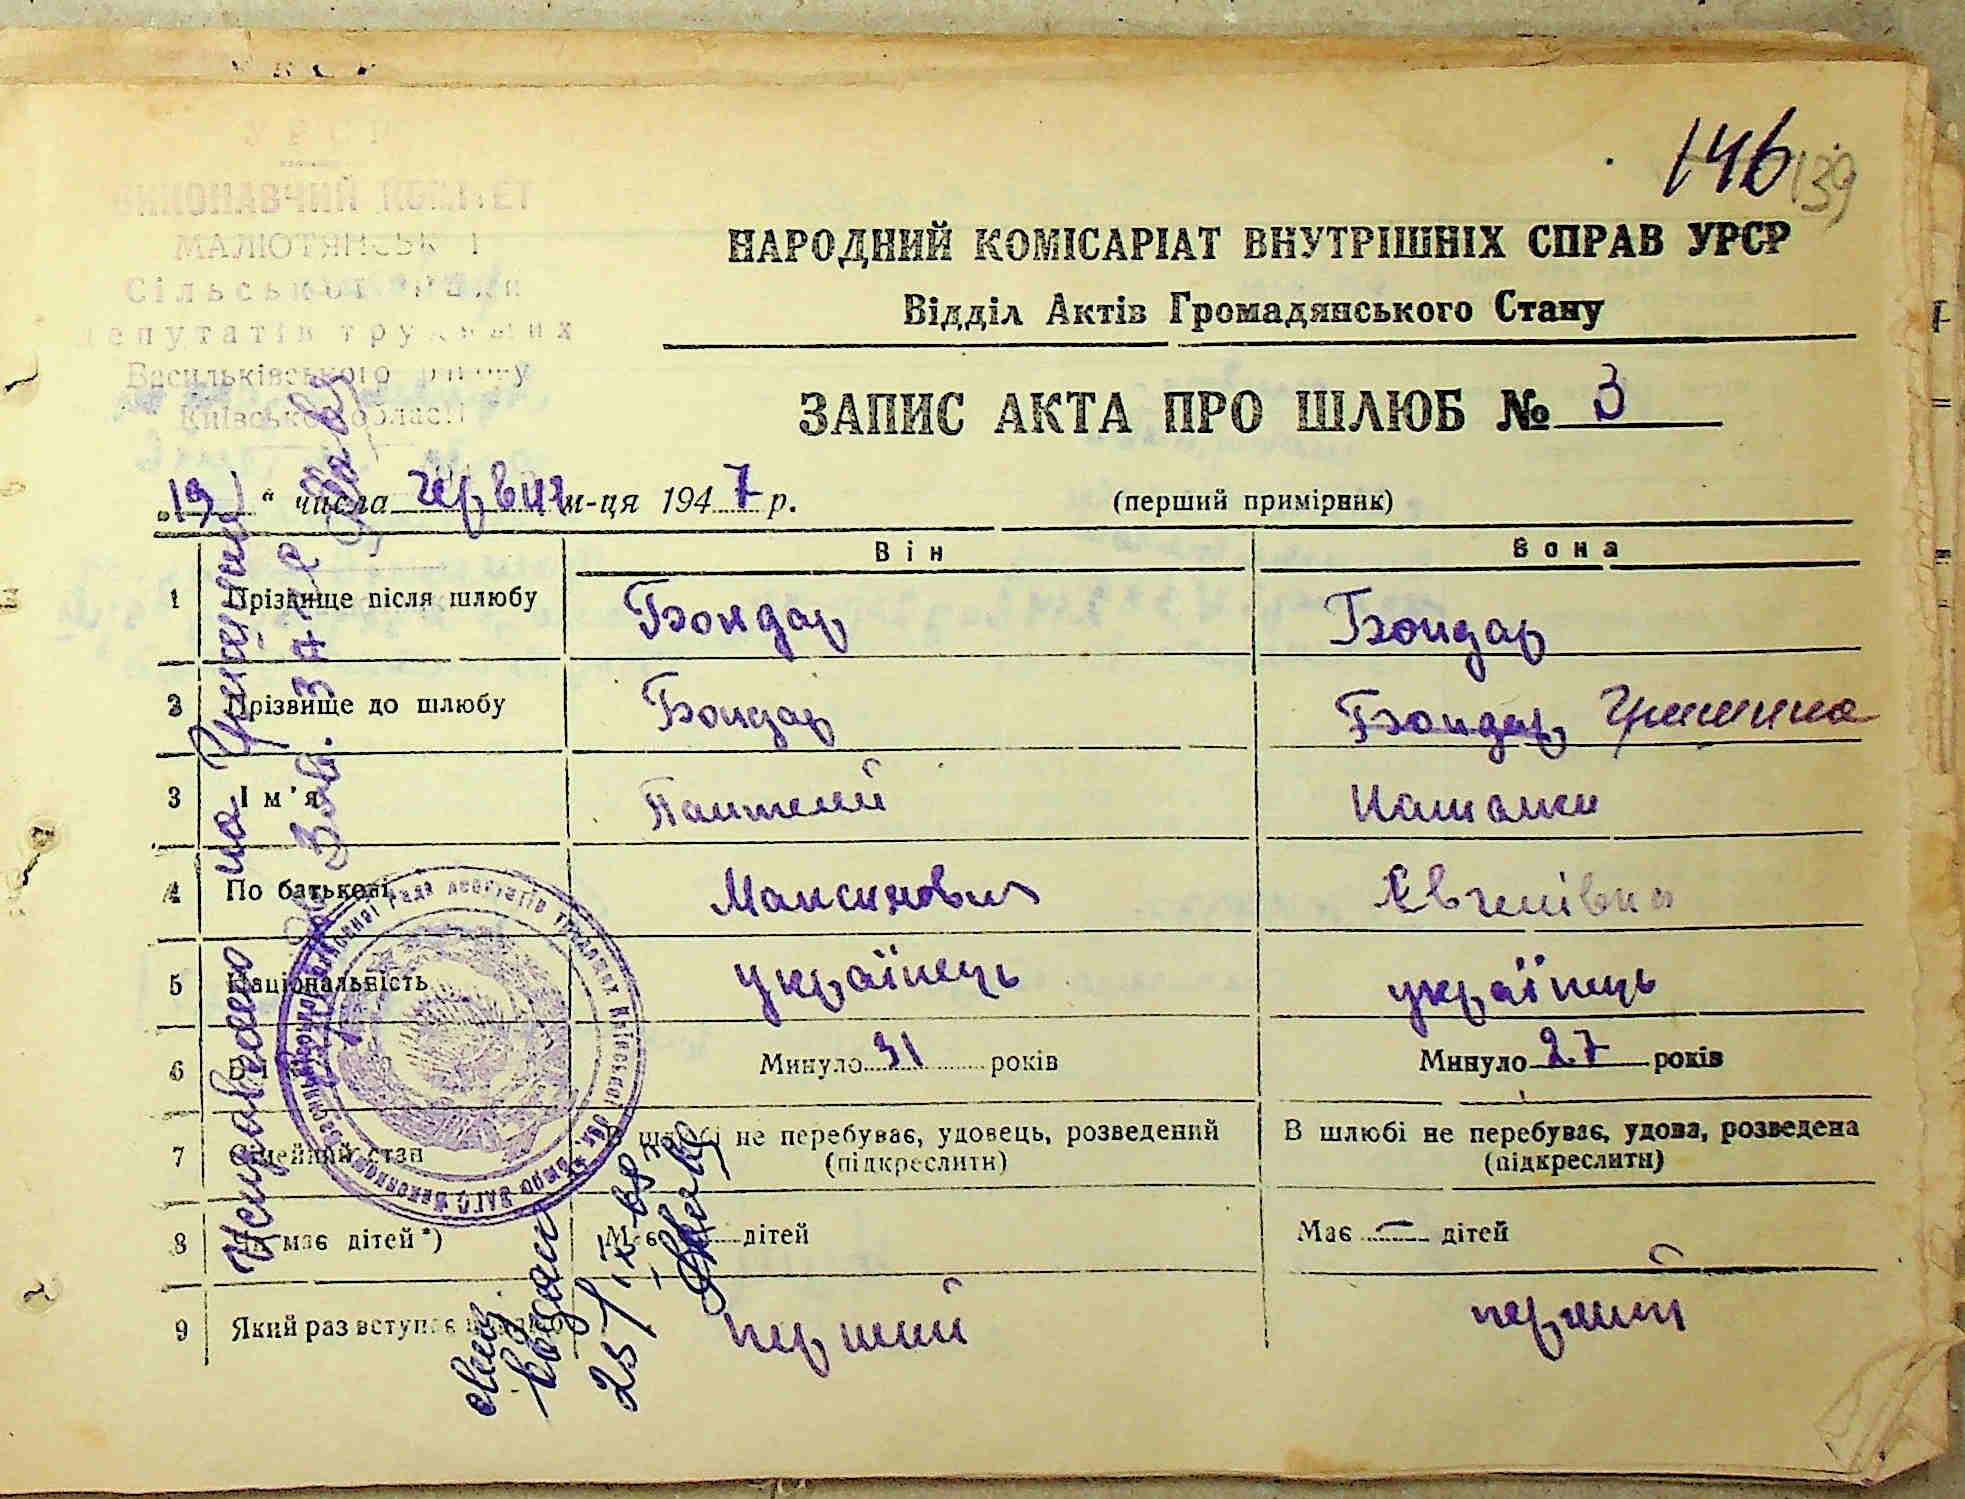 146 139
УРСР
ВИКОНАВЧИЙ КОМІТЕТ
МАЛЮТЯНСЬКОЇ
Сільської Ради
депутатів трудящих
Васильківського району
Київської області
НАРОДНИЙ КОМІСАРІАТ ВНУТРІШНІХ СПРАВ УРСР
Відділ Актів Громадянського Стану
ЗАПИС АКТА ПРО ШЛЮБ № 3
„19“ числа червня м-ця 1947 р. (перший примірник)
Він Вона
1 Прізвище після шлюбу Бондар Бондар
2 Прізвище до шлюбу Бондар Бондар Гришина
3 Ім'я Пантелій
4 По батькові Максимович Євгенівна
5 Національність українець українець
6 Вік Минуло 31 років Минуло 27 років
7 Сімейний стан В шлюбі не перебуває, удовець, розведений (підкреслити) В шлюбі не перебуває, удова, розведена (підкреслити)
8 Чи має дітей*) Має дітей Має — дітей
9 Який раз вступає в шлюб перший перший
Исправлено на
25/IX-68